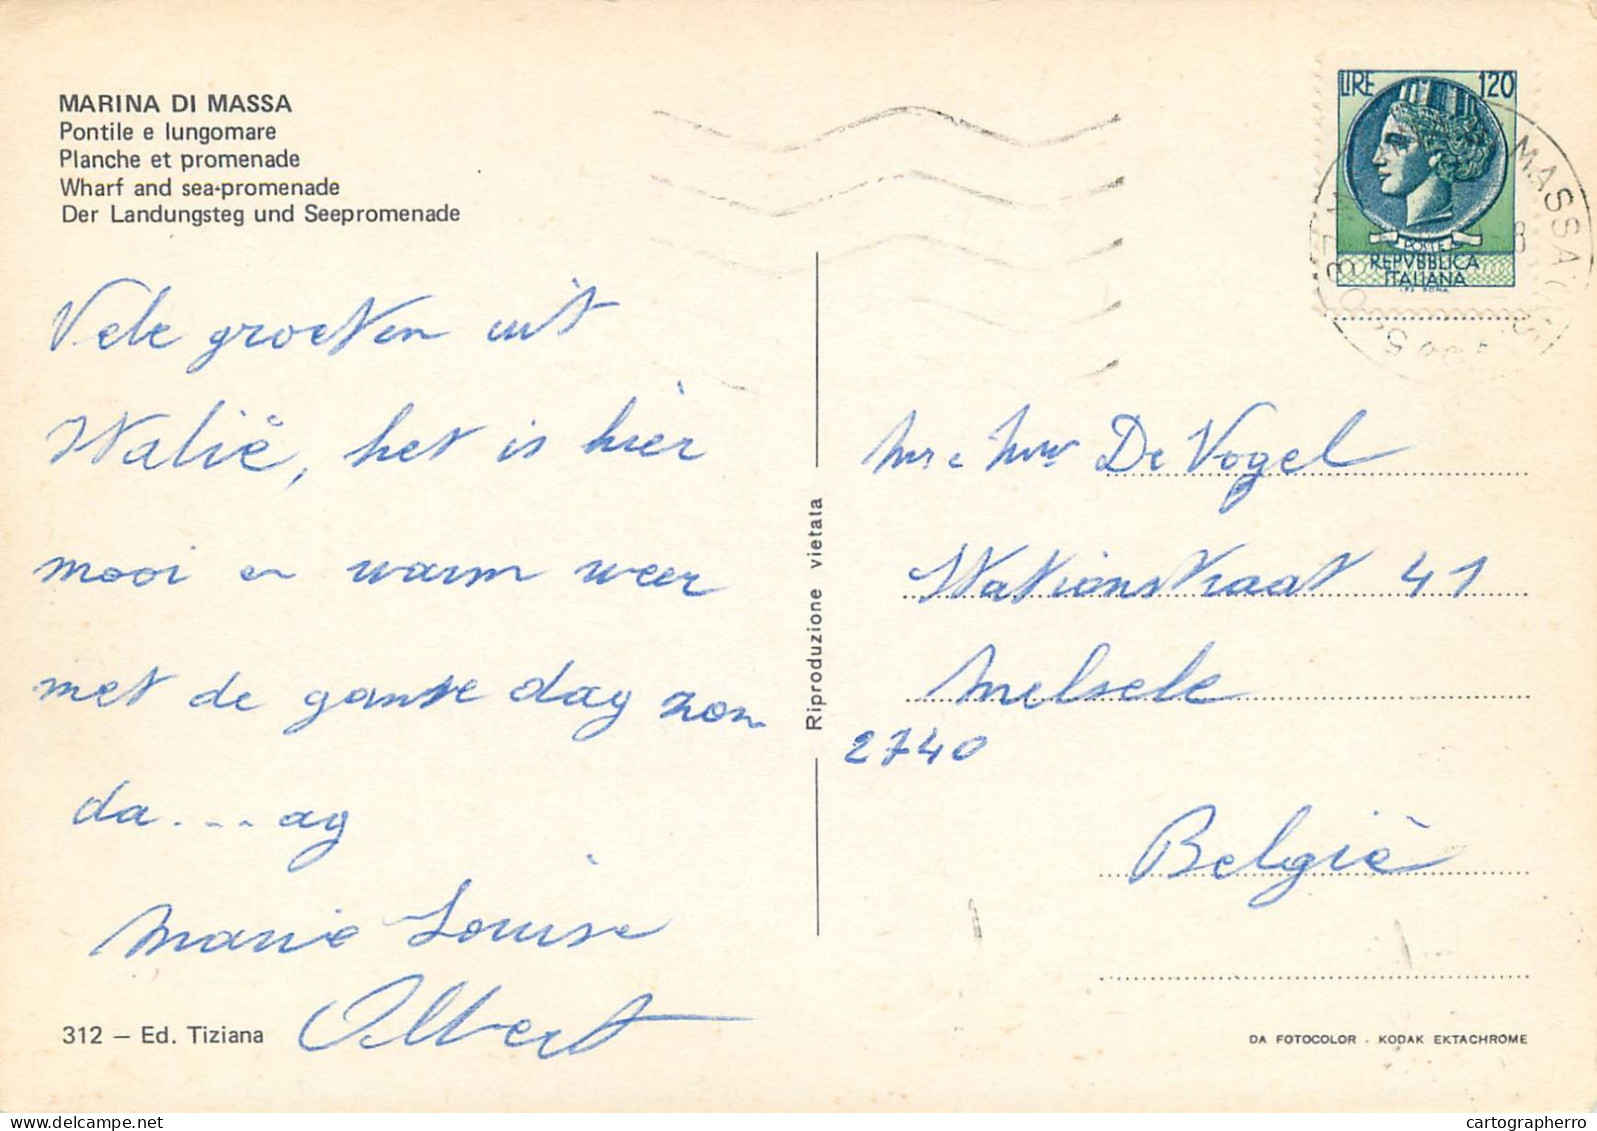 MARINA DI MASSA
Pontile e lungomare
Planche et promenade
Wharf and sea-promenade
Der Landungsteg und Seepromenade
Vele groeten uit
Italië, het is hier
mooi en warm weer
met de ganse dag zon
da....ag
Marie Louise
Albert
312 — Ed. Tiziana
Riproduzione vietata
LIRE 120
POSTE
REPVBBLICA
ITALIANA
I.P.S. ROMA
MASSA
Mr & Mw De Vogel
Stationstraat 41
Melsele
2740
België
DA FOTOCOLOR - KODAK EKTACHROME
cartographerro